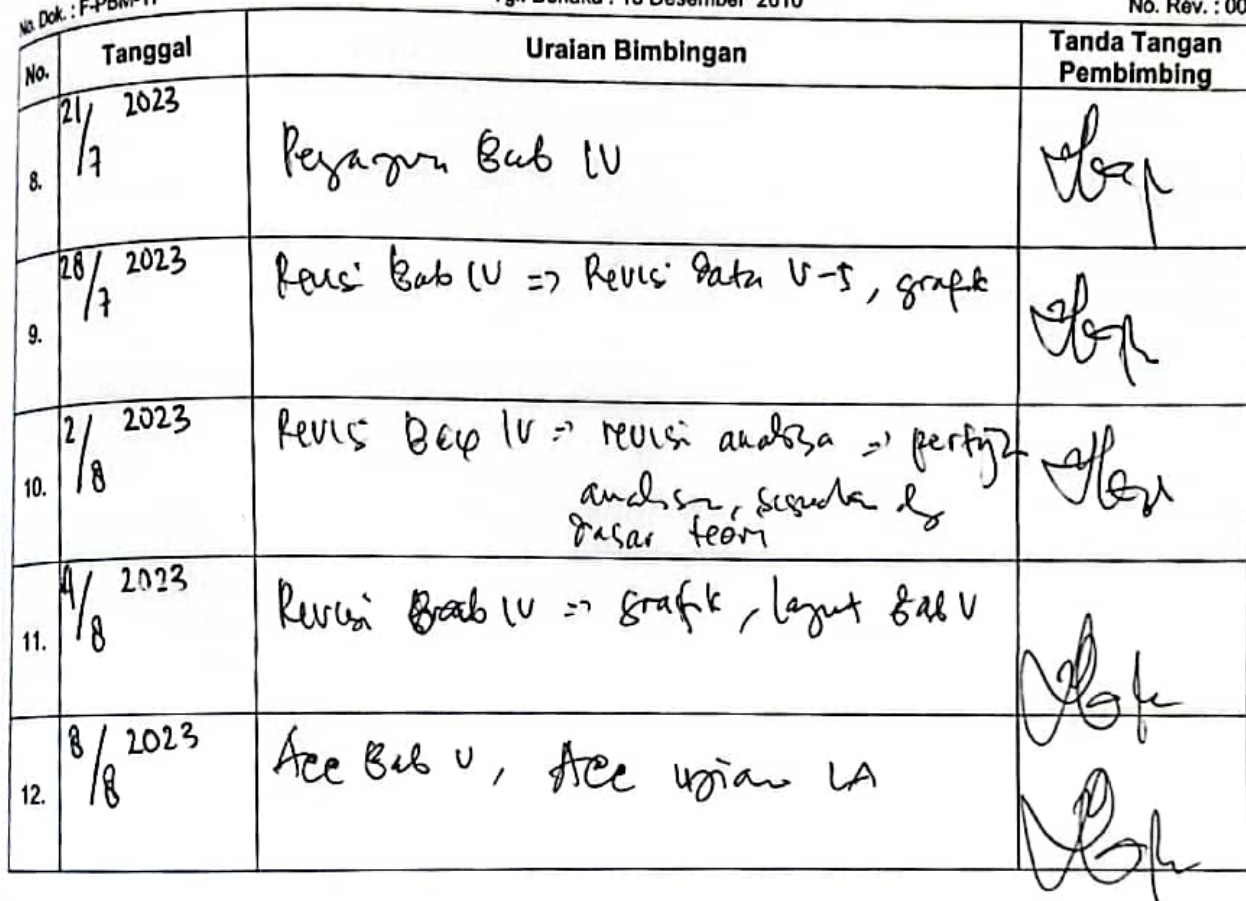 No. Dok. : F-PBM-17
16 Desember 2010
No. Rev. : 00
No. Tanggal Uraian Bimbingan Tanda Tangan Pembimbing
8. 21/7 2023 Bab IV
9. 28/7 2023 Revisi Bab IV => Revisi Data V-S, grafik
10. 2/8 2023 Revisi Bab IV => revisi analisa =>
analisa, dg
dasar teori
11. 4/8 2023 Revisi Bab IV => grafik, lanjut Bab V
12. 8/8 2023 Acc Bab V, Acc ujian LA